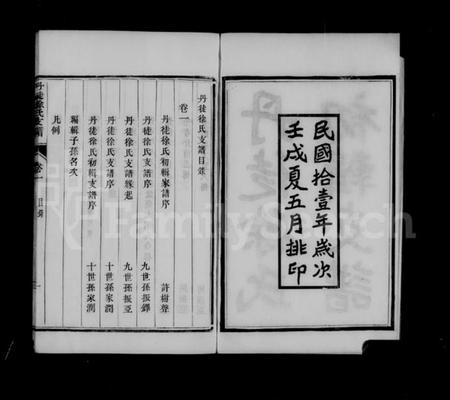 民國拾壹年歲次
壬戌夏五月排印
丹徒徐氏支譜目錄
卷一
丹徒徐氏初輯家譜序 許樹聲
丹徒徐氏支譜序 九世孫振鐸
丹徒徐氏支譜緣起 九世孫振亞
丹徒徐氏支譜序 十世孫家潤
丹徒徐氏初輯支譜序 十世孫家潤
編輯子孫名次
凡例
丹徒徐氏支譜
卷一
目錄
一
FamilySearch